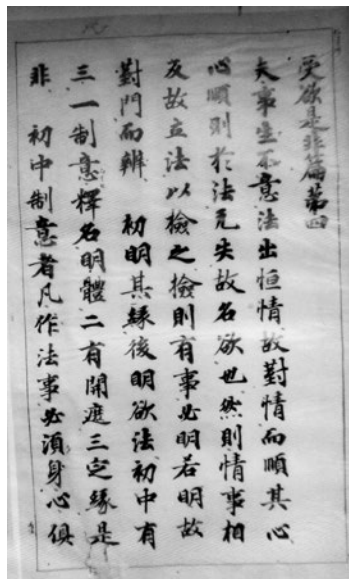 受欲是非篇第四
夫事生不意法出恒情故對情而順其心
心順則於法无失故名欲也然則情事相
及故立法以檢之檢則有事必明若明故
對門而辨 初明其緣後明欲法初中有
三一制意釋名明體二有開遮三定緣是
非 初中制意者凡作法事必湏身心俱